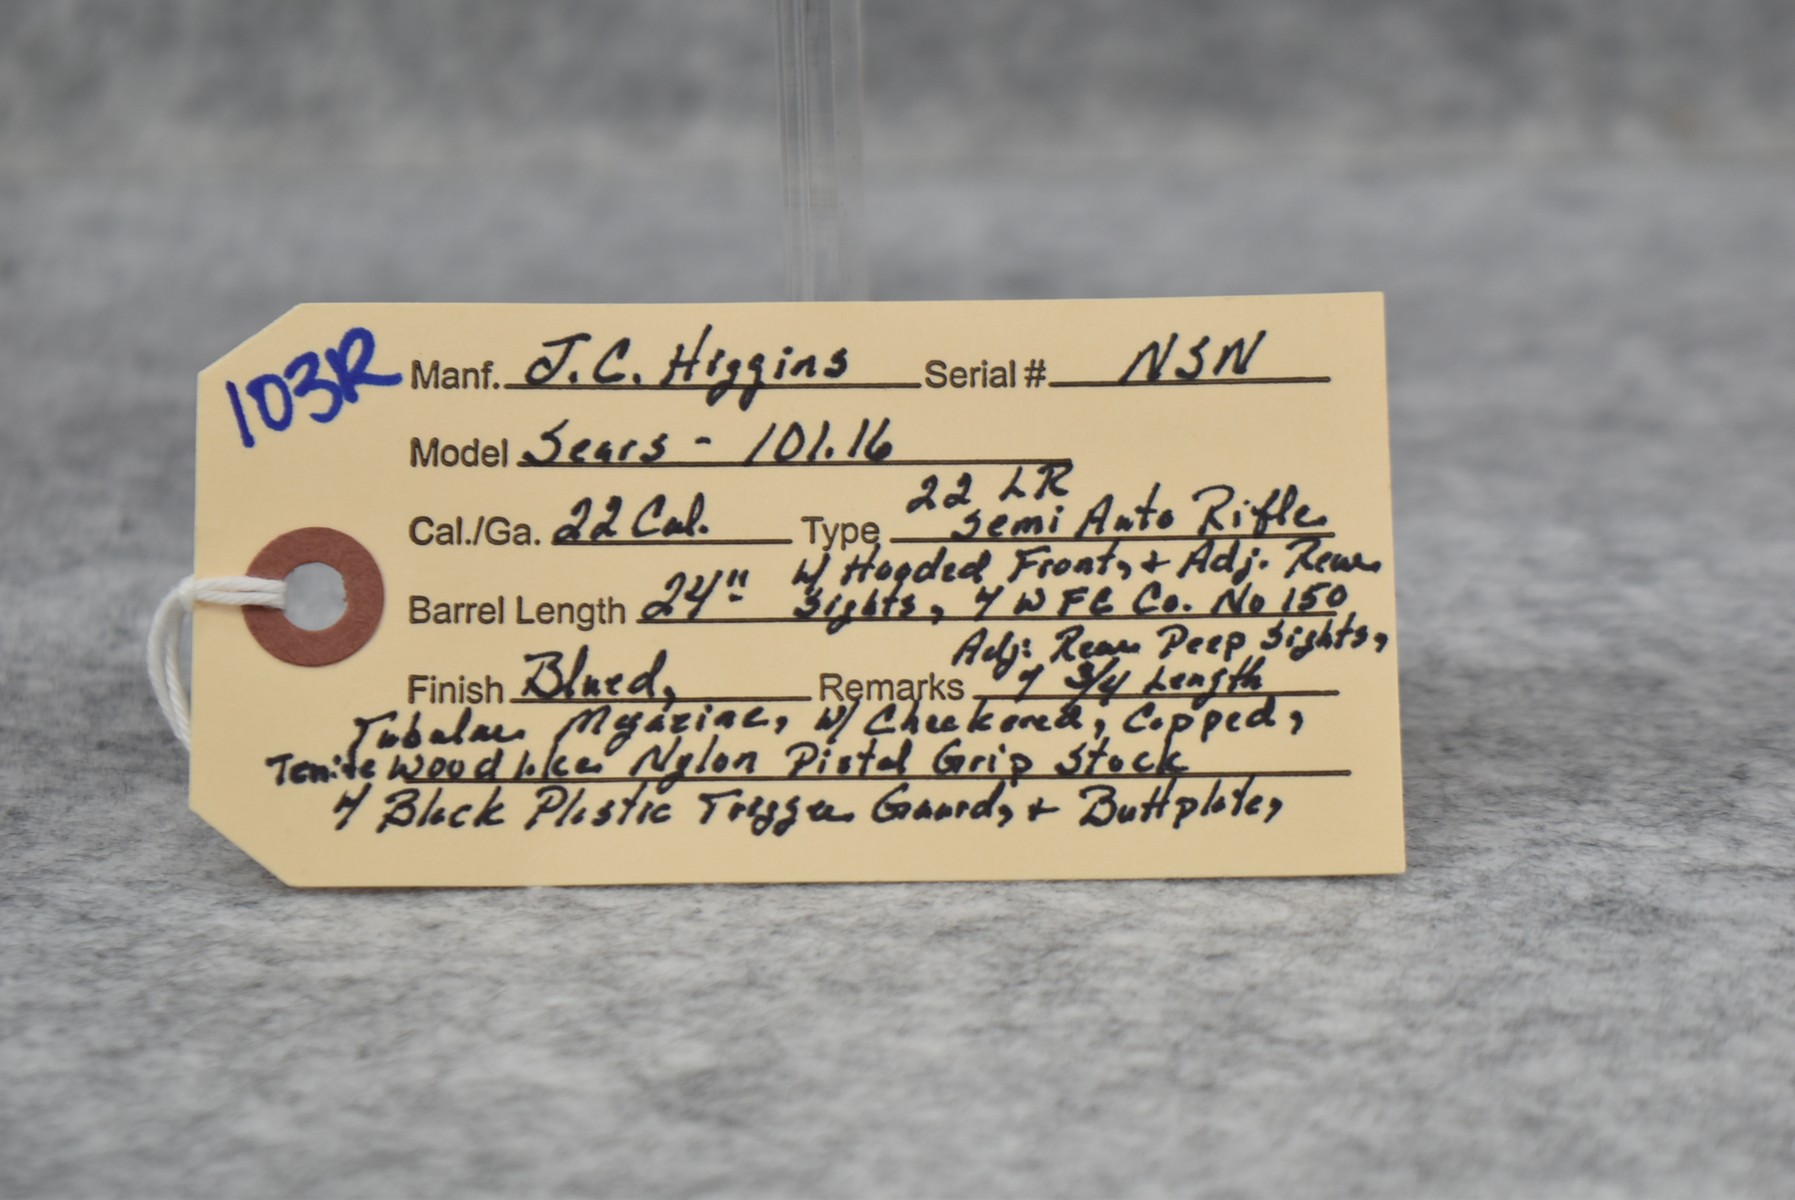 103R
Manf. J.C. Higgins Serial # NSN
Model Sears - 101.16
22 LR
Cal./Ga. 22 Cal. Type Semi Auto Rifle
W/ Hooded Front, + Adj. Rear
Barrel Length 24" Sights, Y W F E Co. No 150
Adj: Rear Peep Sights,
Finish Blued, Remarks Y 3/4 Length
Tubular Magazine, W/ Checkered, Capped,
Tenite Woodlike Nylon Pistol Grip Stock
Y Black Plastic Trigger Gaurd, + Buttplate,